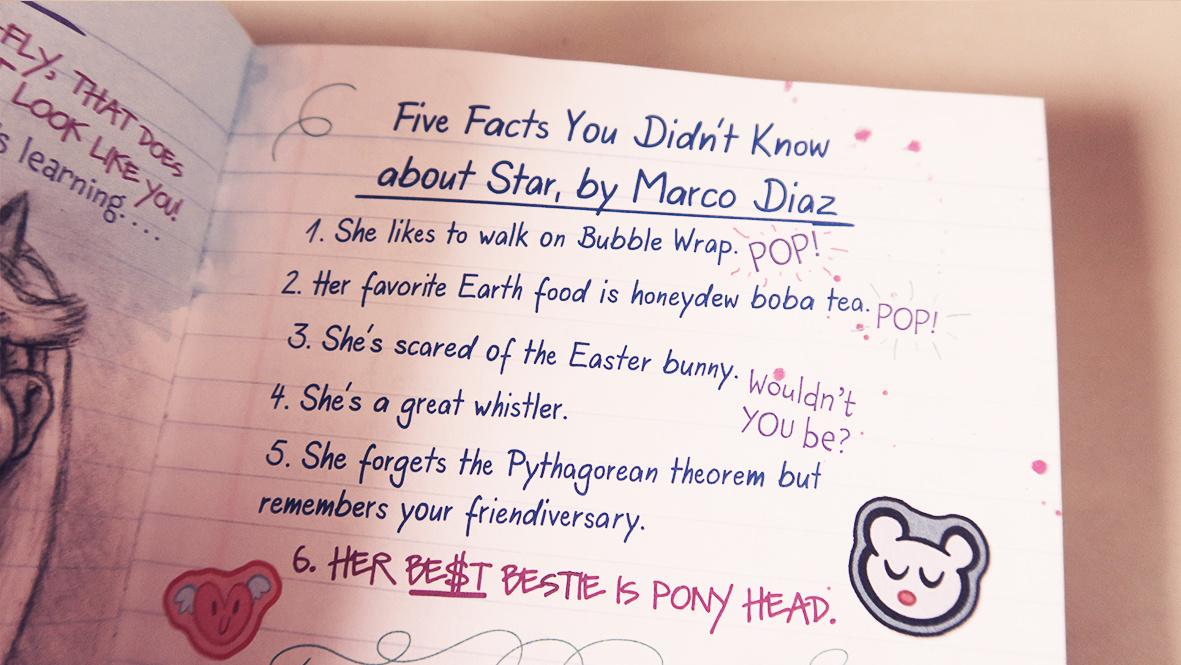 FLY, THAT DOES
LOOK LIKE YOU!
learning....
Five Facts You Didn't Know
about Star, by Marco Diaz
1. She likes to walk on Bubble Wrap. POP!
2. Her favorite Earth food is honeydew boba tea. POP!
3. She's scared of the Easter bunny. Wouldn't
YOU be?
4. She's a great whistler.
5. She forgets the Pythagorean theorem but
remembers your friendiversary.
6. HER BE$T BESTIE IS PONY HEAD.